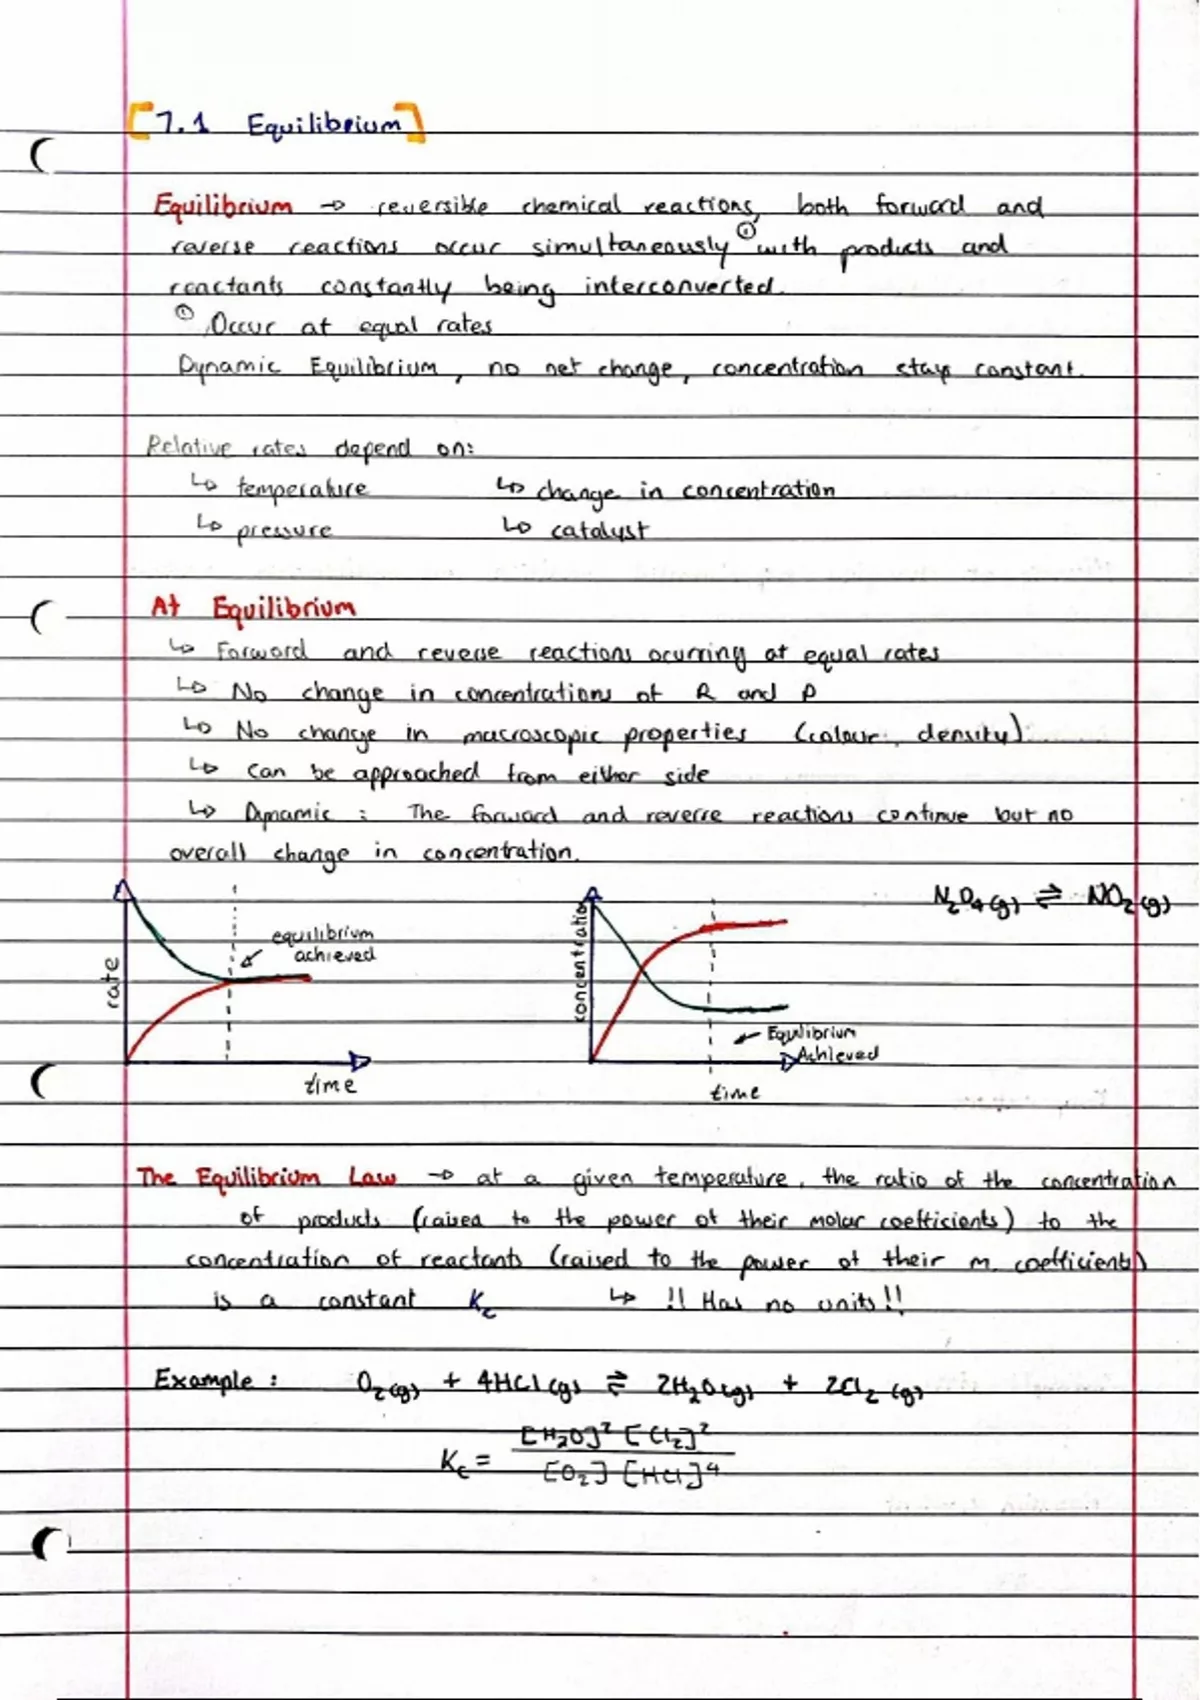 [7.1 Equilibrium]
Equilibrium → reversible chemical reactions, both forward and
reverse reactions occur simultaneously ① with products and
reactants constantly being interconverted.
① Occur at equal rates
Dynamic Equilibrium, no net change, concentration stays constant.
Relative rates depend on:
↳ temperature ↳ change in concentration
↳ pressure ↳ catalyst
At Equilibrium
↳ Forward and reverse reactions ocurring at equal rates
↳ No change in concentrations of R and P
↳ No change in macroscopic properties (colour, density)
↳ Can be approached from either side
↳ Dynamic : The forward and reverse reactions continue but no
overall change in concentration.
N₂O₄(g) ⇌ NO₂(g)
rate
equilibrium
achieved
time
concentration
Equilibrium
Achieved
time
The Equilibrium Law → at a given temperature, the ratio of the concentration
of products (raised to the power of their molar coefficients) to the
concentration of reactants (raised to the power of their m. coefficients)
is a constant Kc ↳ !! Has no units !!
Example : O₂(g) + 4HCl(g) ⇌ 2H₂O(g) + 2Cl₂(g)
Kc = [H₂O]² [Cl₂]²
[O₂] [HCl]⁴